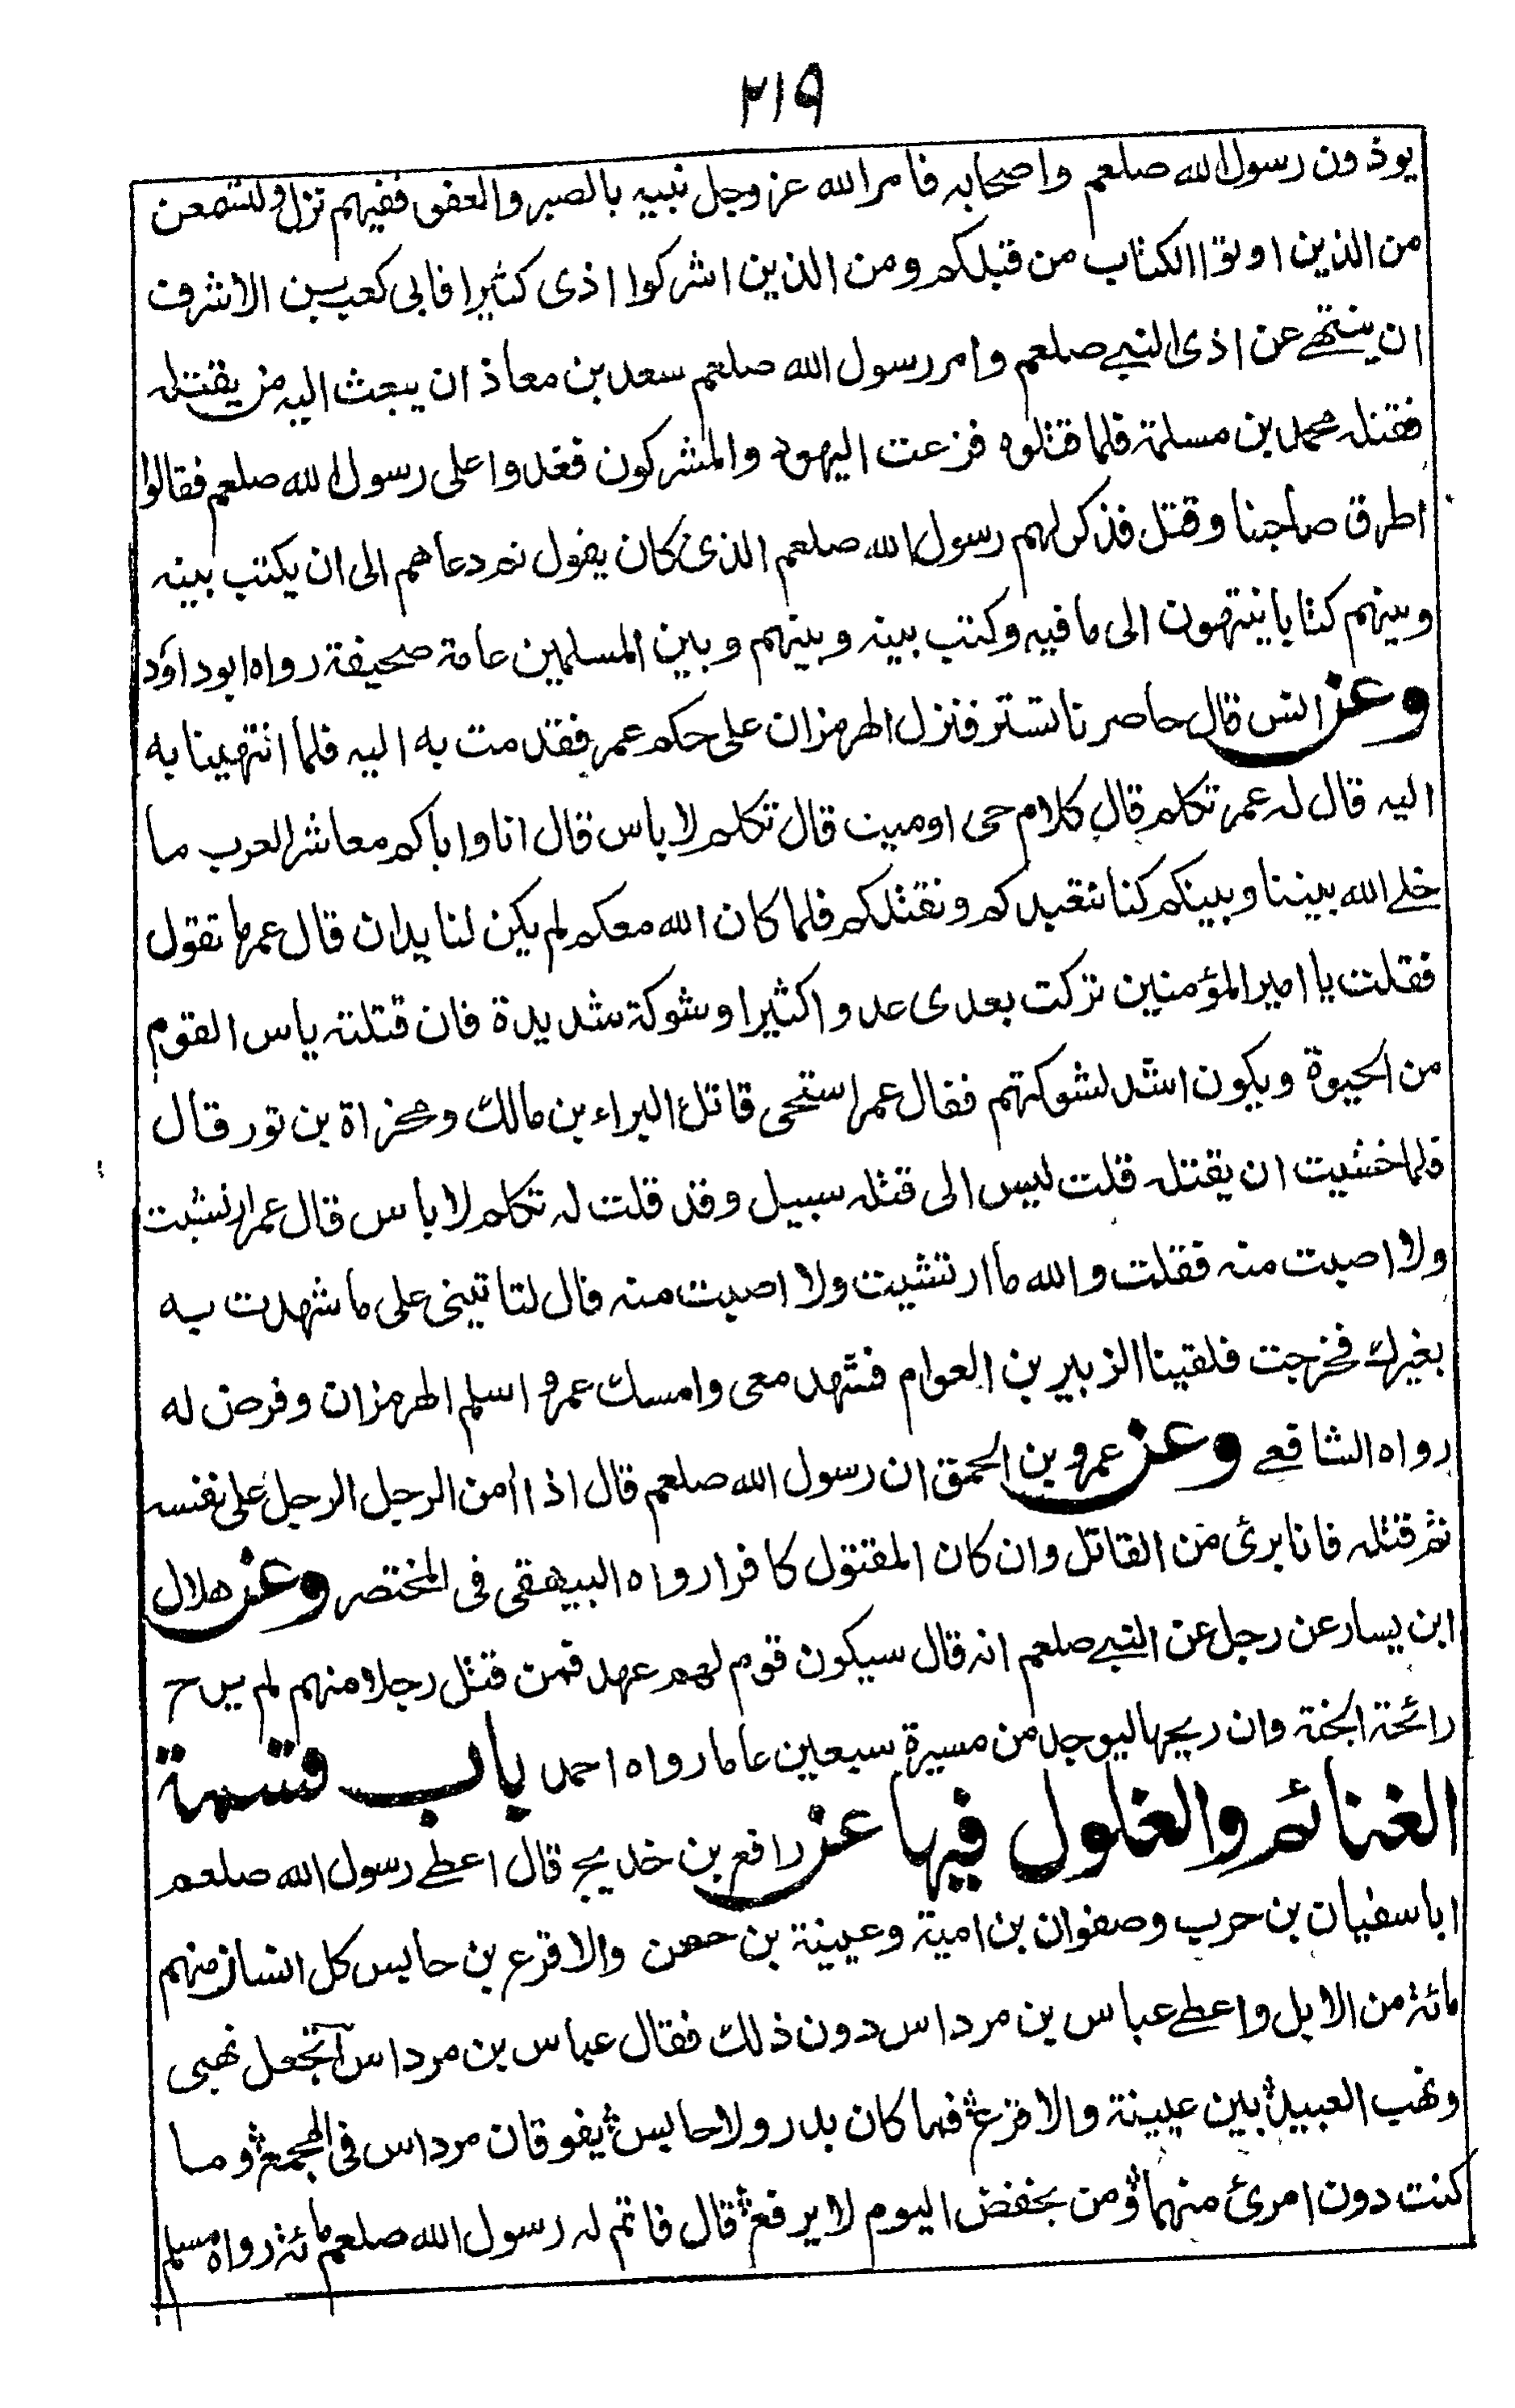 ٢١٩
يوذون رسول الله صلعم واصحابه فامر الله عز وجل نبيه بالصبر والعفو ففيهم نزل ولتسمعن
من الذين اوتوا الكتاب من قبلكم ومن الذين اشركوا اذى كثيرا فابى كعب بن الاشرف
ان ينتهي عن اذى النبي صلعم وامر رسول الله صلعم سعد بن معاذ ان يبعث اليه من يقتله
فقتله محمد بن مسلمة فلما قتلوه فزعت اليهود والمشركون فغدوا على رسول الله صلعم فقالوا
اطرق صاحبنا وقتل فذكر لهم رسول الله صلعم الذى كان يقول ثم دعاهم الى ان يكتب بينه
وبينهم كتابا ينتهون الى ما فيه وكتب بينه وبينهم وبين المسلمين عامة صحيفة رواه ابو داود
وعن انس قال حاصرنا تستر فنزل الهرمزان على حكم عمر فقدمت به اليه فلما انتهينا به
اليه قال له عمر تكلم قال كلام حى او ميت قال تكلم لا باس قال انا واياكم معاشر العرب ما
خلى الله بيننا وبينكم كنا نتعبدكم ونقتلكم فلما كان الله معكم لم يكن لنا يدان قال عمر ما تقول
فقلت يا امير المؤمنين تركت بعدى عدوا كثيرا وشوكة شديدة فان قتلته ياس القوم
من الحيوة ويكون اشد لشوكتهم فقال عمر استحى قاتل البراء بن مالك ومجزاة بن ثور قال
فلما خشيت ان يقتله قلت ليس الى قتله سبيل وقد قلت له تكلم لا باس قال عمر ارتشيت
ولا اصبت منه فقلت والله ما ارتشيت ولا اصبت منه قال لتاتيني على ما شهدت به
بغيرك فخرجت فلقينا الزبير بن العوام فشهد معى وامسك عمر و اسلم الهرمزان وفرض له
رواه الشافعي وعن عمرو بن الحمق ان رسول الله صلعم قال اذا امن الرجل الرجل على نفسه
ثم قتله فانا برئ من القاتل وان كان المقتول كافرا رواه البيهقى فى المختصر وعن هلال
ابن يسار عن رجل عن النبي صلعم انه قال سيكون قوم لهم عهد فمن قتل رجلا منهم لم يرح
رائحة الجنة وان ريحها ليوجد من مسيرة سبعين عاما رواه احمد باب قسمة
الغنائم والغلول فيها عن رافع بن خديج قال اعطى رسول الله صلعم
ابا سفيان بن حرب وصفوان بن امية وعيينة بن حصن والاقرع بن حابس كل انسان منهم
مائة من الابل واعطى عباس بن مرداس دون ذلك فقال عباس بن مرداس اتجعل نهبى
ونهب العبيد بين عيينة والاقرع فما كان بدر ولا حابس يفوقان مرداس فى المجمع وما
كنت دون امرئ منهما ومن يخفض اليوم لا يرفع قال فاتم له رسول الله صلعم مائة رواه مسلم